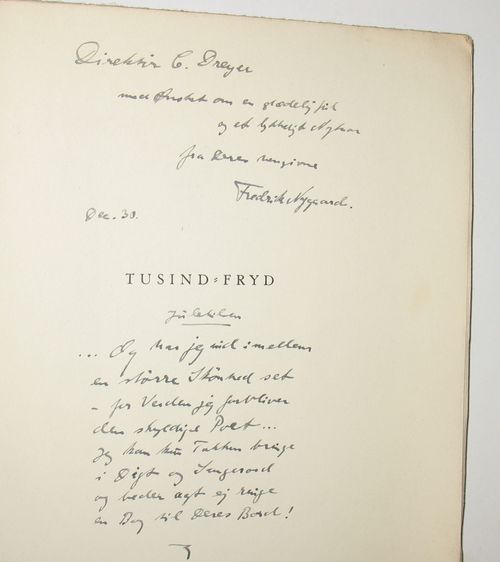 Direktør C. Dreyer
med Ønsket om en glædelig Jul
og et lykkeligt Nytaar
fra Deres hengivne
Fredrik Nygaard.
Dec. 30.
TUSIND-FRYD
... Og har jeg ind imellem
en större Skönhed set
– for Verden jeg forbliver
den skyldige Poet...
Jeg kan kun Takken bringe
i Digt og Sangerord
og beder agt ej ringe
en Dag til Deres Bord!